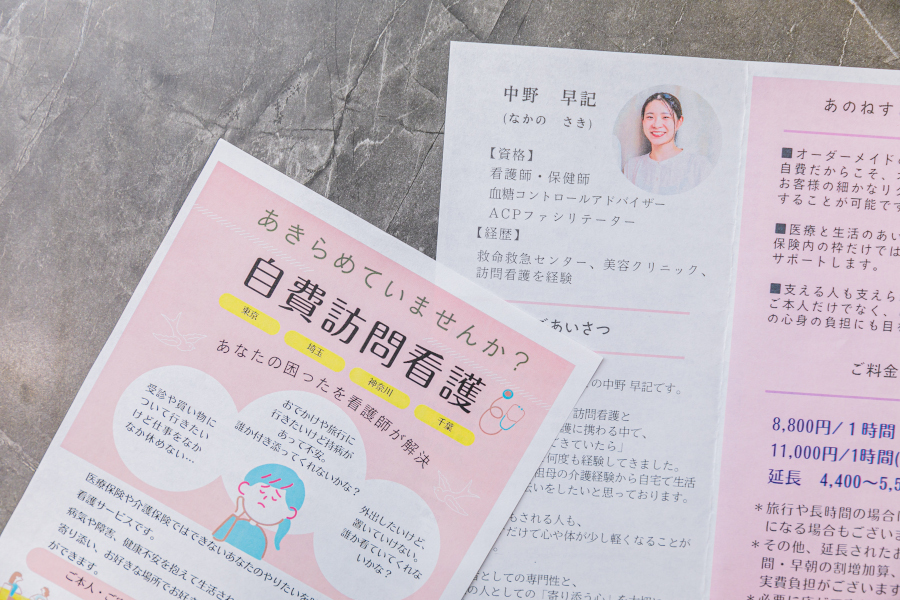 あきらめていませんか?
自費訪問看護
東京
埼玉
神奈川
千葉
あなたの困ったを看護師が解決
受診や買い物に
ついて行きたい
けど仕事をなか
なか休めない…
おでかけや旅行に
行きたいけど持病が
あって不安。
誰か付き添ってくれないかな?
外出したいけど、
置いていけない。
誰か看ていてくれな
いかな?
医療保険や介護保険ではできないあなたのやりたいを
看護サービスです。
病気や障害、健康不安を抱えて生活され
寄り添い、お好きな場所でお好き
ができます。
ご本人・ご
中野 早記
(なかの さき)
【資格】
看護師・保健師
血糖コントロールアドバイザー
ACPファシリテーター
【経歴】
救命救急センター、美容クリニック、
訪問看護を経験
ごあいさつ
の中野 早記です。
訪問看護と
護に携わる中で、
できていたら」
何度も経験してきました。
祖母の介護経験から自宅で生活
伝いをしたいと思っております。
もされる人も、
だけで心や体が少し軽くなることが
としての専門性と、
の人としての「寄り添う心」を大切に
あのねす
■オーダーメイドの
自費だからこそ、
お客様の細かなリク
することが可能です
■医療と生活のあい
保険内の枠だけでは
サポートします。
■支える人も支えら
ご本人だけでなく、
の心身の負担にも目
ご料金
8,800円/1時間
11,000円/1時間(
延長 4,400~5,5
*旅行や長時間の場合は
になる場合もございま
*その他、延長されたお
間・早朝の割増加算、
実費負担がございます